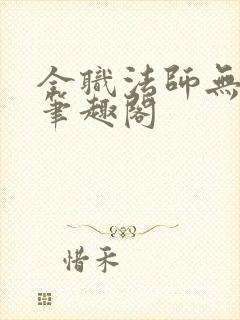 全職法師無
筆趣閣
惜禾